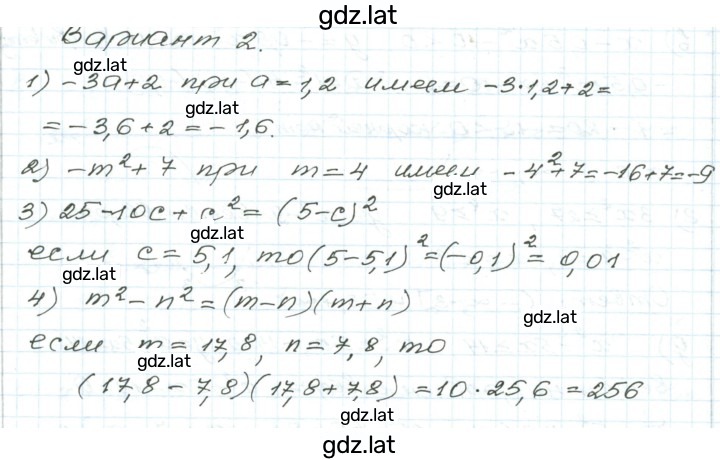 gdz.lat
Вариант 2.
gdz.lat
1) -3a+2 при a=1,2 имеем -3·1,2+2=
gdz.lat
=-3,6+2=-1,6.
2) -m²+7 при m=4 имеем -4²+7=-16+7=-9
gdz.lat
3) 25-10c+c²=(5-c)²
gdz.lat
если c=5,1, то (5-5,1)²=(-0,1)²=0,01
gdz.lat
4) m²-n²=(m-n)(m+n)
gdz.lat
если m=17,8, n=7,8, то
gdz.lat
(17,8-7,8)(17,8+7,8)=10·25,6=256
gdz.lat
gdz.lat